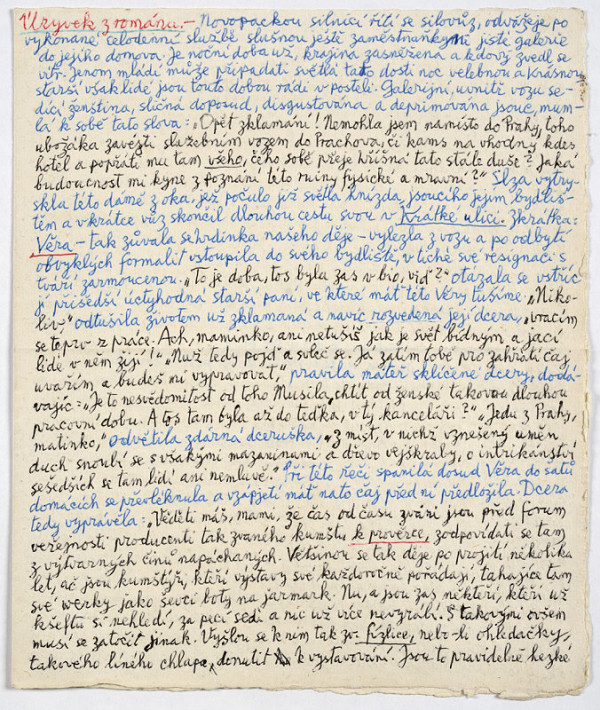 Úryvek z románu.- Novopackou silnicí řítí se silovůz, odvážeje po
vykonané celodenní službě slušnou ještě zaměstnankyni jisté galerie
do jejího domova. Je noční doba už, krajina zasněžena a kdovíj zvedl se
vítr. Jenom mládí může připadati světlá tato dosti noc velebnou a krásnou,
starší však lidé jsou touto dobou rádi v posteli. Galerijní, uvnitř vozu se-
dící ženština, sličná doposud, disgustována a deprimována jsouc, mum-
lá k sobě tato slova: „Opět zklamání! Nemohla jsem namísto do Prahy, toho
ubožáka zavézti služebním vozem do Prachova, či kams na vhodný kdes
hotel a popřáti mu tam všeho, čeho sobě přeje hříšná tato stále duše? Jaká
budoucnost mi kyne z poznání této ruiny fysické a mravní?" Slza vytry-
skla této dámě z oka, jež počulo již světla hnízda, jsoucího jejím bydliš-
těm a vkrátce vůz skončil dlouhou cestu svou v Krátké ulici. Zkrátka:
Věra - tak zůvala se hrdinka našeho děje - vylezla z vozu a po odbytí
obvyklých formalit vstoupila do svého bydliště, v tiché své resignaci s
tváří zarmoucenou. „To je doba, tos byla zas v bio, viď?" otázala se vstříc
jí přišedší úctyhodná starší paní, ve které máť této Věry tušíme. „Niko-
liv," odtušila životem už zklamaná a navíc rozvedená její dcera, „vracím
se teprv z práce. Ach, maminko, ani netušíš jak je svět bídným a jací
lidé v něm žijí!" „Nuž tedy pojď a svleč se. Já zatím tobě pro zahřátí čaj
uvařím a budeš mi vypravovat," pravila mateř sklíčené dcery, dodá-
vajíc: „Je to nesvědomitost od toho Musila, chtít od ženské takovou dlouhou
pracovní dobu. A tos tam byla až do teďka, v tý kanceláři?" „Jedu z Prahy,
matinko," odvětila zdárná dceruška, „z míst, v nichž vznešený umění
duch snoubí se s všakými mazaninami a dřevo vejškraby, o intrikánství
sešedších se tam lidí ani nemluvě." Při této řeči spanilá dosud Věra do šatů
domácích se převléknula a vzápjetí máť na to čaj před ni předložila. Dcera
tedy vyprávěla: „Věděti máš, mami, že čas od času zváni jsou před forum
veřejnosti producenti tak zvaného kumštu k prověrce, zodpovídati se tam
z výtvarných činů napáchaných. Většinou se tak děje po projití několika
let, ač jsou kumštýři, kteří výstavy své každoročně pořádají, tahajíce tam
své werky jako ševci boty na jarmark. Nu, a jsou zas někteří, kteří už
kšeftu si nehledí, za pecí sedí a nic už více nevyrábí. S takovými ovšem
musí se zatočit jinak. Vyšlou se k nim tak zv. fízlice, nebo-li ohledačky,
takového líného chlapa donutit k vystavování. Jsou to pravidelně hezké